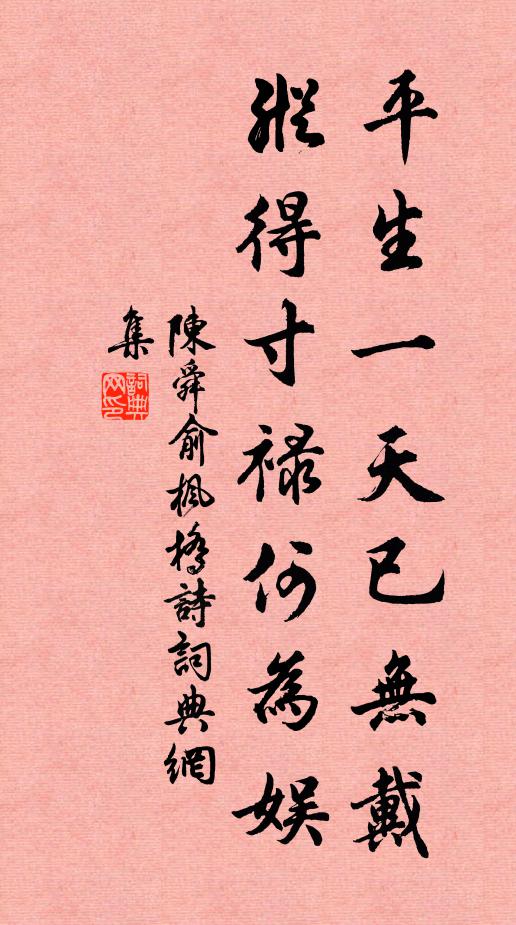 平生一天已無戴
縱得寸祿何為娛
陳舜俞楓橋詩詞典網
集
詞典網印